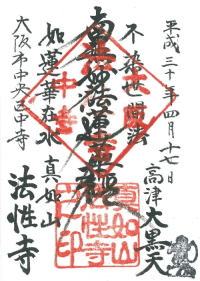 平成三十年四月十七日
高津大黒天
不染世間法
南無妙法蓮華経
如蓮華在水
真如山
大阪市中央区中寺
法性寺
真如山
法性寺